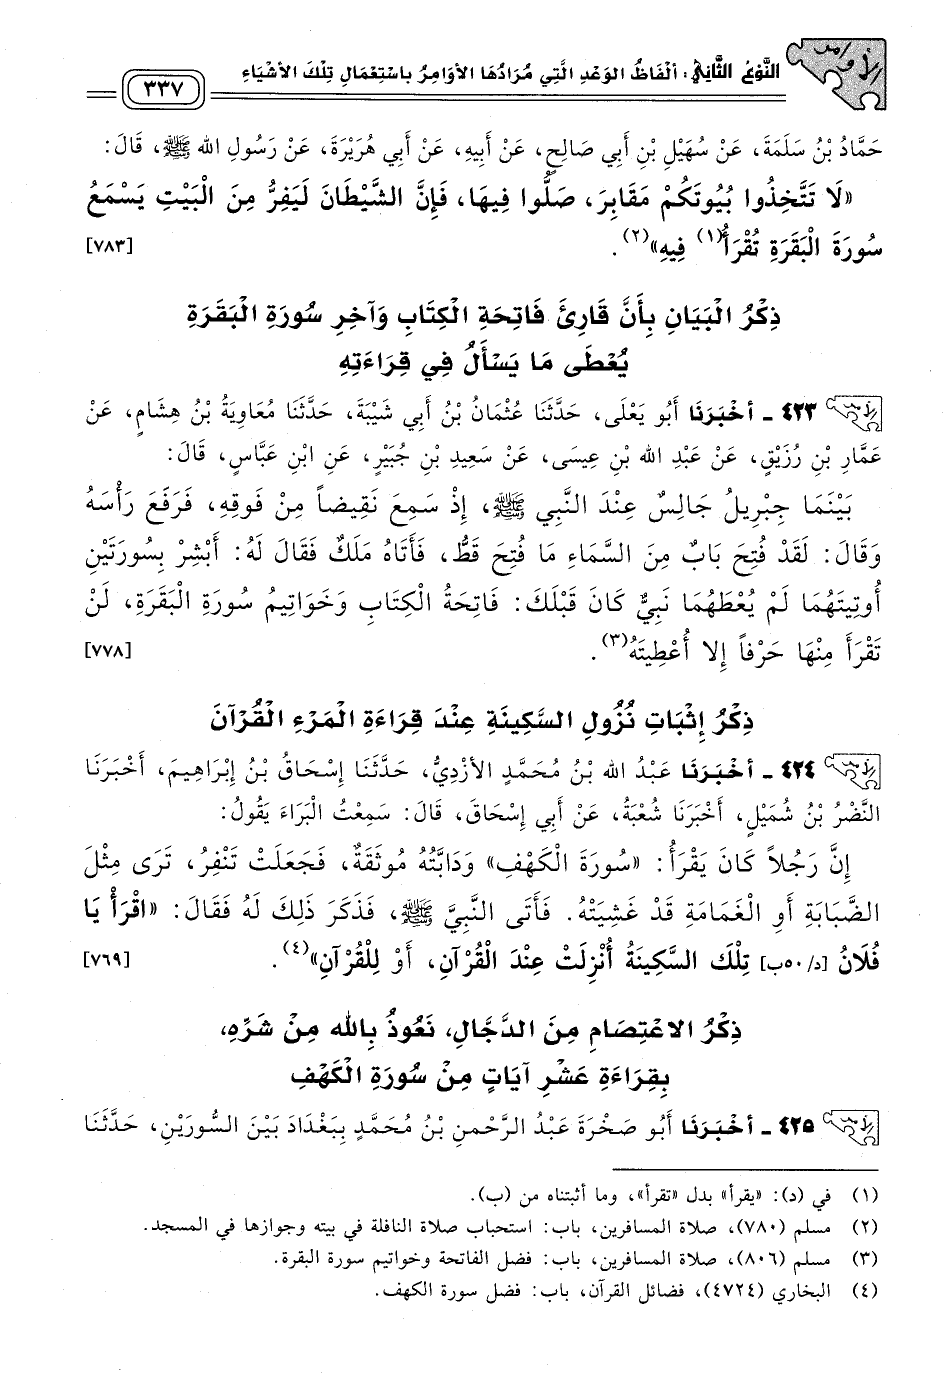 الأوامر
النَّوْعُ الثَّانِي: أَلْفَاظُ الوَعْدِ الَّتِي مُرَادُهَا الأَوَامِرُ بِاسْتِعْمَالِ تِلْكَ الأَشْيَاءِ
٣٣٧
حَمَّادُ بْنُ سَلَمَةَ، عَنْ سُهَيْلِ بْنِ أَبِي صَالِحٍ، عَنْ أَبِيهِ، عَنْ أَبِي هُرَيْرَةَ، عَنْ رَسُولِ الله ﷺ، قَالَ:
«لَا تَتَّخِذُوا بُيُوتَكُمْ مَقَابِرَ، صَلُّوا فِيهَا، فَإِنَّ الشَّيْطَانَ لَيَفِرُّ مِنَ الْبَيْتِ يَسْمَعُ
سُورَةَ الْبَقَرَةِ تُقْرَأُ(١) فِيهِ»(٢). [٧٨٣]
ذِكْرُ الْبَيَانِ بِأَنَّ قَارِئَ فَاتِحَةِ الْكِتَابِ وَآخِرِ سُورَةِ الْبَقَرَةِ
يُعْطَى مَا يَسْأَلُ فِي قِرَاءَتِهِ
٤٢٣ - أَخْبَرَنَا أَبُو يَعْلَى، حَدَّثَنَا عُثْمَانُ بْنُ أَبِي شَيْبَةَ، حَدَّثَنَا مُعَاوِيَةُ بْنُ هِشَامٍ، عَنْ
عَمَّارِ بْنِ رُزَيْقٍ، عَنْ عَبْدِ الله بْنِ عِيسَى، عَنْ سَعِيدِ بْنِ جُبَيْرٍ، عَنِ ابْنِ عَبَّاسٍ، قَالَ:
بَيْنَمَا جِبْرِيلُ جَالِسٌ عِنْدَ النَّبِيِّ ﷺ، إِذْ سَمِعَ نَقِيضاً مِنْ فَوقِهِ، فَرَفَعَ رَأْسَهُ
وَقَالَ: لَقَدْ فُتِحَ بَابٌ مِنَ السَّمَاءِ مَا فُتِحَ قَطُّ، فَأَتَاهُ مَلَكٌ فَقَالَ لَهُ: أَبْشِرْ بِسُورَتَيْنِ
أُوتِيتَهُمَا لَمْ يُعْطَهُمَا نَبِيٌّ كَانَ قَبْلَكَ: فَاتِحَةُ الْكِتَابِ وَخَوَاتِيمُ سُورَةِ الْبَقَرَةِ، لَنْ
تَقْرَأَ مِنْهَا حَرْفاً إِلا أُعْطِيتَهُ(٣). [٧٧٨]
ذِكْرُ إِثْبَاتِ نُزُولِ السَّكِينَةِ عِنْدَ قِرَاءَةِ الْمَرْءِ الْقُرْآنَ
٤٢٤ - أَخْبَرَنَا عَبْدُ الله بْنُ مُحَمَّدٍ الأَزْدِيُّ، حَدَّثَنَا إِسْحَاقُ بْنُ إِبْرَاهِيمَ، أَخْبَرَنَا
النَّضْرُ بْنُ شُمَيْلٍ، أَخْبَرَنَا شُعْبَةُ، عَنْ أَبِي إِسْحَاقَ، قَالَ: سَمِعْتُ الْبَرَاءَ يَقُولُ:
إِنَّ رَجُلاً كَانَ يَقْرَأُ: «سُورَةَ الْكَهْفِ» وَدَابَّتُهُ مُوثَقَةٌ، فَجَعَلَتْ تَنْفِرُ، تَرَى مِثْلَ
الضَّبَابَةِ أَوِ الْغَمَامَةِ قَدْ غَشِيَتْهُ. فَأَتَى النَّبِيَّ ﷺ، فَذَكَرَ ذَلِكَ لَهُ فَقَالَ: «اقْرَأْ يَا
فُلَانُ [د/٥٠ب] تِلْكَ السَّكِينَةُ أُنْزِلَتْ عِنْدَ الْقُرْآنِ، أَوْ لِلْقُرْآنِ»(٤). [٧٦٩]
ذِكْرُ الاعْتِصَامِ مِنَ الدَّجَّالِ، نَعُوذُ بِالله مِنْ شَرِّهِ،
بِقِرَاءَةِ عَشْرِ آيَاتٍ مِنْ سُورَةِ الْكَهْفِ
٤٢٥ - أَخْبَرَنَا أَبُو صَخْرَةَ عَبْدُ الرَّحْمنِ بْنُ مُحَمَّدٍ بِبَغْدَادَ بَيْنَ السُّورَيْنِ، حَدَّثَنَا
(١) في (د): «يقرأ» بدل «تقرأ»، وما أثبتناه من (ب).
(٢) مسلم (٧٨٠)، صلاة المسافرين، باب: استحباب صلاة النافلة في بيته وجوازها في المسجد.
(٣) مسلم (٨٠٦)، صلاة المسافرين، باب: فضل الفاتحة وخواتيم سورة البقرة.
(٤) البخاري (٤٧٢٤)، فضائل القرآن، باب: فضل سورة الكهف.